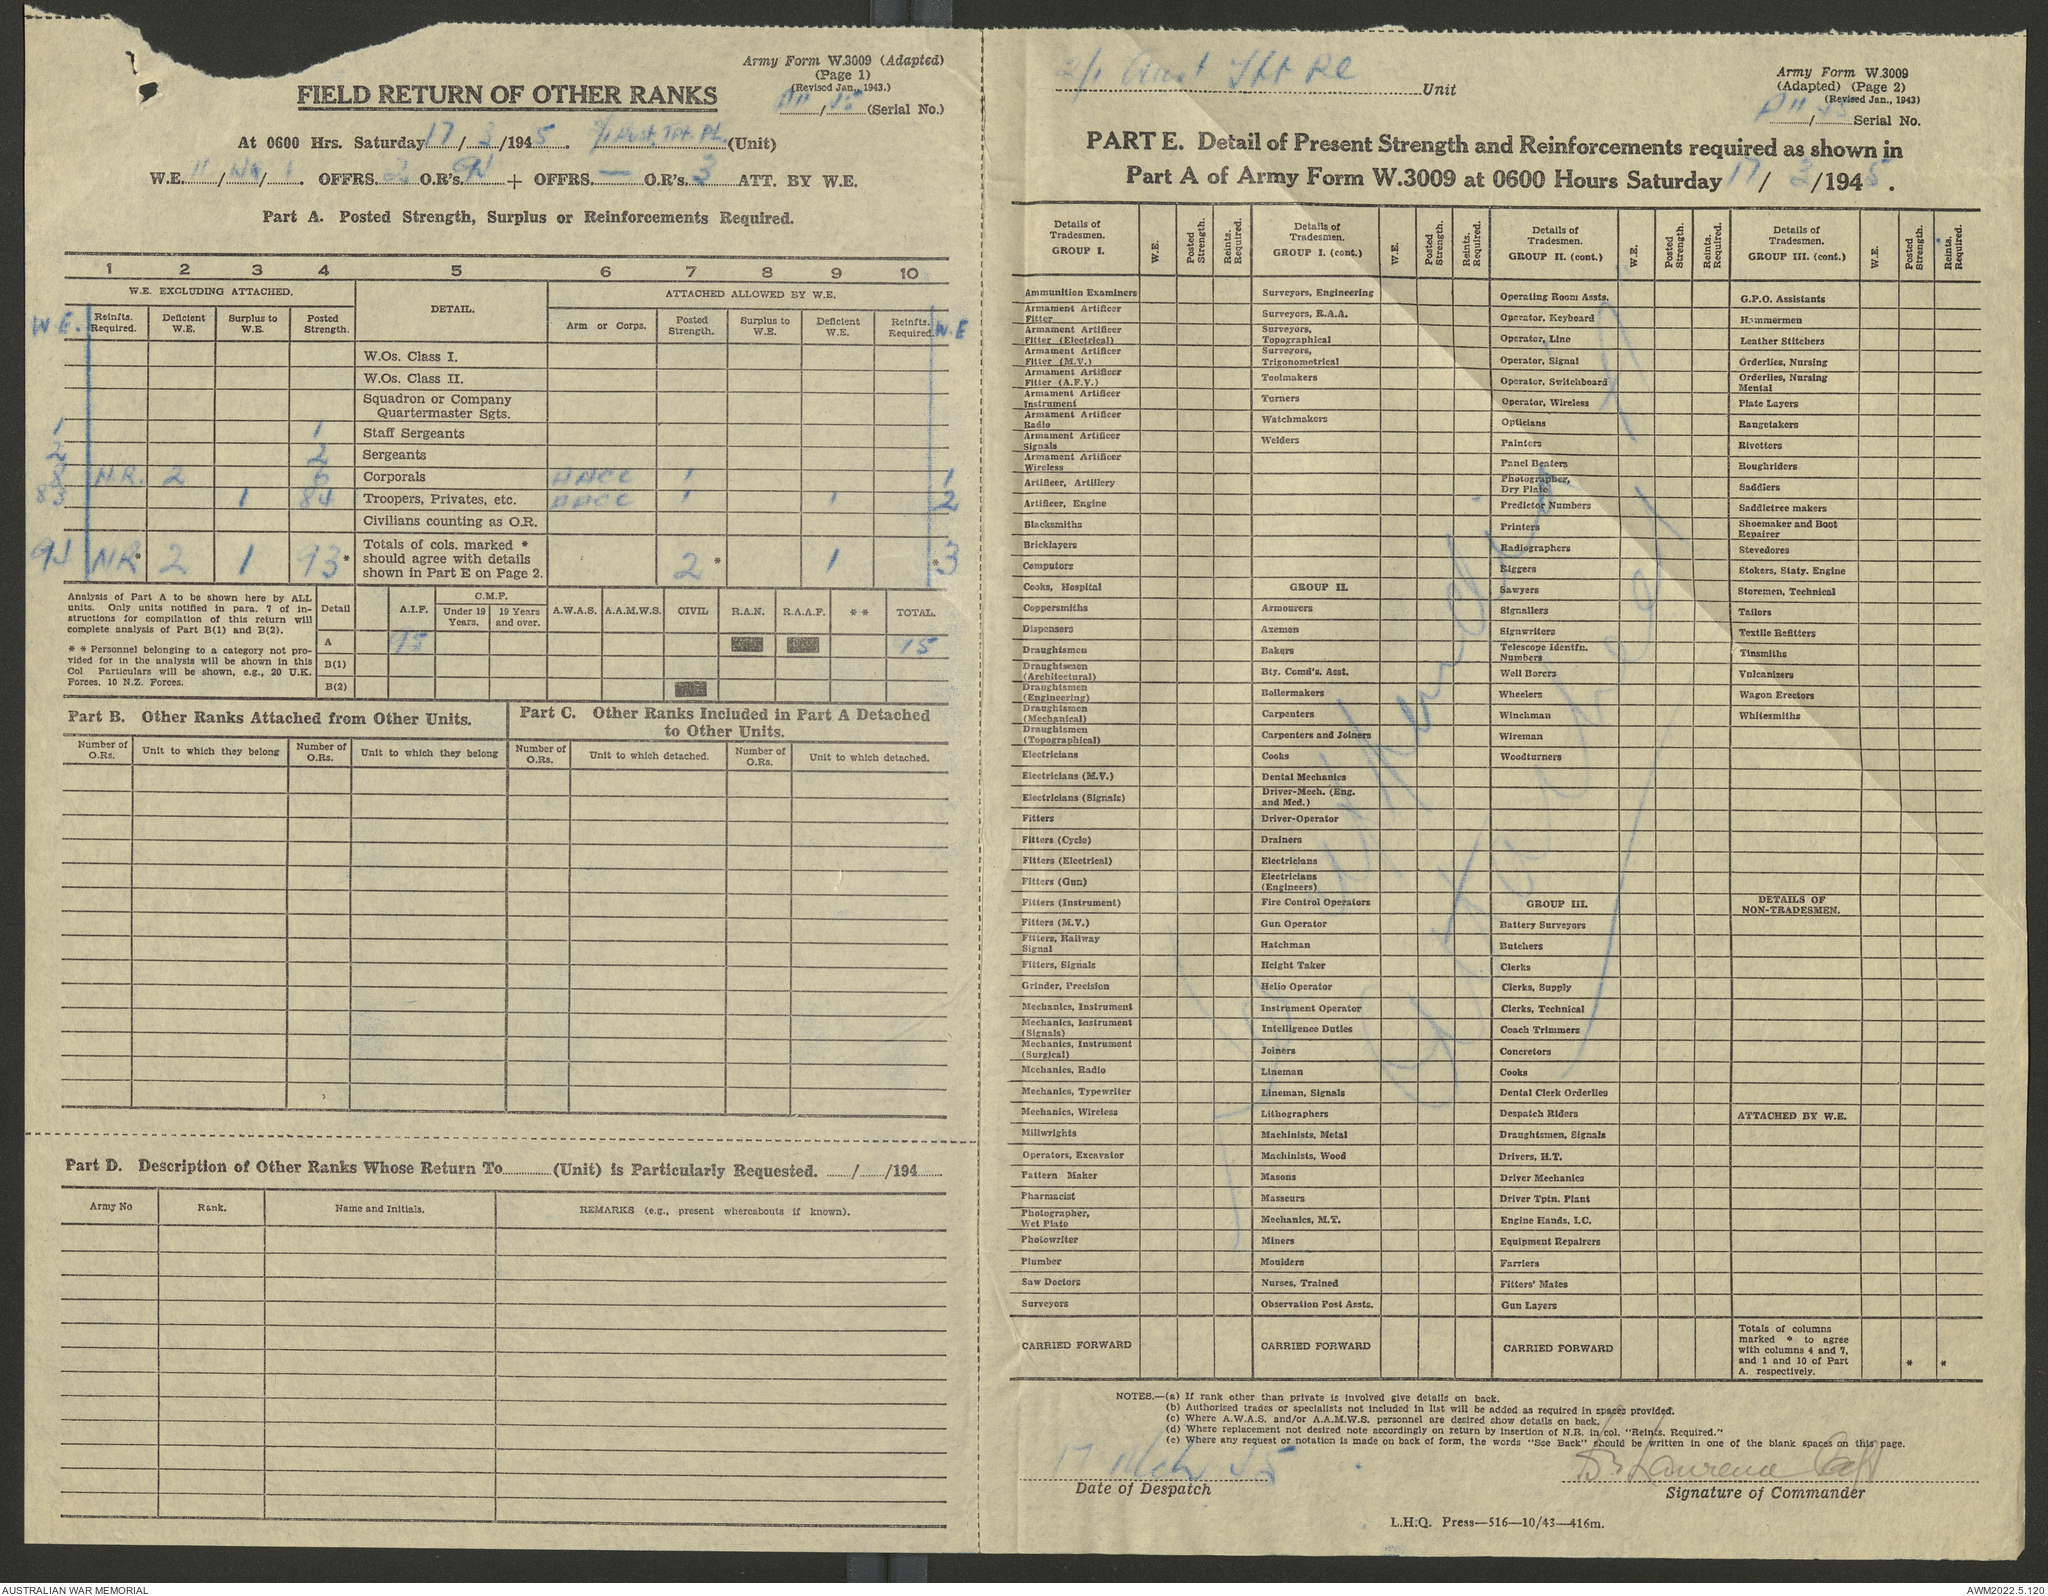 Army Form W.3009 (Adapted)
(Page 1)
(Revised Jan., 1943.)
FIELD RETURN OF OTHER RANKS
/45 (Serial No.)
At 0600 Hrs. Saturday 17/3/1945. 2/1 Aust. Tpt. Pl. (Unit)
W.E. 11/ /1. OFFRS. 2 O.R's. 94 + OFFRS. — O.R's. 3 ATT. BY W.E.
Part A. Posted Strength, Surplus or Reinforcements Required.
1 2 3 4 5 6 7 8 9 10
W.E. EXCLUDING ATTACHED. DETAIL. ATTACHED ALLOWED BY W.E.
W.E. Reinfts. Required. Deficient W.E. Surplus to W.E. Posted Strength. Arm or Corps. Posted Strength. Surplus to W.E. Deficient W.E. Reinfts. Required. W.E
W.Os. Class I.
W.Os. Class II.
Squadron or Company
Quartermaster Sgts.
1 1 Staff Sergeants
2 2 Sergeants
8 N.R. 2 6 Corporals AACC 1 1
83 1 84 Troopers, Privates, etc. AACC 1 1 2
Civilians counting as O.R.
94 NR* 2 1 93* Totals of cols. marked * should agree with details shown in Part E on Page 2. 2* 1 *3
Analysis of Part A to be shown here by ALL
units. Only units notified in para. 7 of in-
structions for compilation of this return will
complete analysis of Part B(1) and B(2).
* * Personnel belonging to a category not pro-
vided for in the analysis will be shown in this
Col Particulars will be shown, e.g., 20 U.K.
Forces, 10 N.Z. Forces.
Detail A.I.F. C.M.F. Under 19 Years. 19 Years and over. A.W.A.S. A.A.M.W.S. CIVIL R.A.N. R.A.A.F. * * TOTAL.
A 95 95
B(1)
B(2)
Part B. Other Ranks Attached from Other Units.
Number of O.Rs. Unit to which they belong Number of O.Rs. Unit to which they belong
Part C. Other Ranks Included in Part A Detached
to Other Units.
Number of O.Rs. Unit to which detached. Number of O.Rs. Unit to which detached.
Part D. Description of Other Ranks Whose Return To (Unit) is Particularly Requested. / /194
Army No Rank. Name and Initials. REMARKS (e.g., present whereabouts if known).
2/1 Aust Tpt Pl Unit
Army Form W.3009
(Adapted) (Page 2)
(Revised Jan., 1943)
/45 Serial No.
PART E. Detail of Present Strength and Reinforcements required as shown in
Part A of Army Form W.3009 at 0600 Hours Saturday 17/3/1945.
Details of Tradesmen. GROUP I. W.E. Posted Strength. Reints. Required.
Ammunition Examiners
Armament Artificer Fitter
Armament Artificer Fitter (Electrical)
Armament Artificer Fitter (M.V.)
Armament Artificer Fitter (A.F.V.)
Armament Artificer Instrument
Armament Artificer Radio
Armament Artificer Signals
Armament Artificer Wireless
Artificer, Artillery
Artificer, Engine
Blacksmiths
Bricklayers
Computors
Cooks, Hospital
Coppersmiths
Dispensers
Draughtsmen
Draughtsmen (Architectural)
Draughtsmen (Engineering)
Draughtsmen (Mechanical)
Draughtsmen (Topographical)
Electricians
Electricians (M.V.)
Electricians (Signals)
Fitters
Fitters (Cycle)
Fitters (Electrical)
Fitters (Gun)
Fitters (Instrument)
Fitters (M.V.)
Fitters, Railway Signal
Fitters, Signals
Grinder, Precision
Mechanics, Instrument
Mechanics, Instrument (Signals)
Mechanics, Instrument (Surgical)
Mechanics, Radio
Mechanics, Typewriter
Mechanics, Wireless
Millwrights
Operators, Excavator
Pattern Maker
Pharmacist
Photographer, Wet Plate
Photowriter
Plumber
Saw Doctors
Surveyors
CARRIED FORWARD
Details of Tradesmen. GROUP I. (cont.) W.E. Posted Strength. Reints. Required.
Surveyors, Engineering
Surveyors, R.A.A.
Surveyors, Topographical
Surveyors, Trigonometrical
Toolmakers
Turners
Watchmakers
Welders
GROUP II.
Armourers
Axemen
Bakers
Bty. Comd's. Asst.
Boilermakers
Carpenters
Carpenters and Joiners
Cooks
Dental Mechanics
Driver-Mech. (Eng. and Med.)
Driver-Operator
Drainers
Electricians
Electricians (Engineers)
Fire Control Operators
Gun Operator
Hatchman
Height Taker
Helio Operator
Instrument Operator
Intelligence Duties
Joiners
Lineman
Lineman, Signals
Lithographers
Machinists, Metal
Machinists, Wood
Masons
Masseurs
Mechanics, M.T.
Miners
Moulders
Nurses, Trained
Observation Post Assts.
CARRIED FORWARD
Details of Tradesmen. GROUP II. (cont.) W.E. Posted Strength. Reints. Required.
Operating Room Assts.
Operator, Keyboard
Operator, Line
Operator, Signal
Operator, Switchboard
Operator, Wireless
Opticians
Painters
Panel Beaters
Photographer, Dry Plate
Predictor Numbers
Printers
Radiographers
Riggers
Sawyers
Signallers
Signwriters
Telescope Identfn. Numbers
Well Borers
Wheelers
Winchman
Wireman
Woodturners
GROUP III.
Battery Surveyors
Butchers
Clerks
Clerks, Supply
Clerks, Technical
Coach Trimmers
Concretors
Cooks
Dental Clerk Orderlies
Despatch Riders
Draughtsmen, Signals
Drivers, H.T.
Driver Mechanics
Driver Tptn. Plant
Engine Hands, I.C.
Equipment Repairers
Farriers
Fitters' Mates
Gun Layers
CARRIED FORWARD
Details of Tradesmen. GROUP III. (cont.) W.E. Posted Strength. Reints. Required.
G.P.O. Assistants
Hammermen
Leather Stitchers
Orderlies, Nursing
Orderlies, Nursing Mental
Plate Layers
Rangetakers
Rivetters
Roughriders
Saddlers
Saddletree makers
Shoemaker and Boot Repairer
Stevedores
Stokers, Staty. Engine
Storemen, Technical
Tailors
Textile Refitters
Tinsmiths
Vulcanizers
Wagon Erectors
Whitesmiths
DETAILS OF
NON-TRADESMEN.
ATTACHED BY W.E.
Totals of columns
marked * to agree
with columns 4 and 7,
and 1 and 10 of Part
A. respectively. * *
Appendix
attached
NOTES.—(a) If rank other than private is involved give details on back.
(b) Authorised trades or specialists not included in list will be added as required in spaces provided.
(c) Where A.W.A.S. and/or A.A.M.W.S. personnel are desired show details on back.
(d) Where replacement not desired note accordingly on return by insertion of N.R. in col. "Reints. Required."
(e) Where any request or notation is made on back of form, the words "See Back" should be written in one of the blank spaces on this page.
17 Mch 45
Date of Despatch
Laurence Capt
Signature of Commander
L.H.Q. Press—516—10/43—416m.
AUSTRALIAN WAR MEMORIAL
AWM2022.5.120